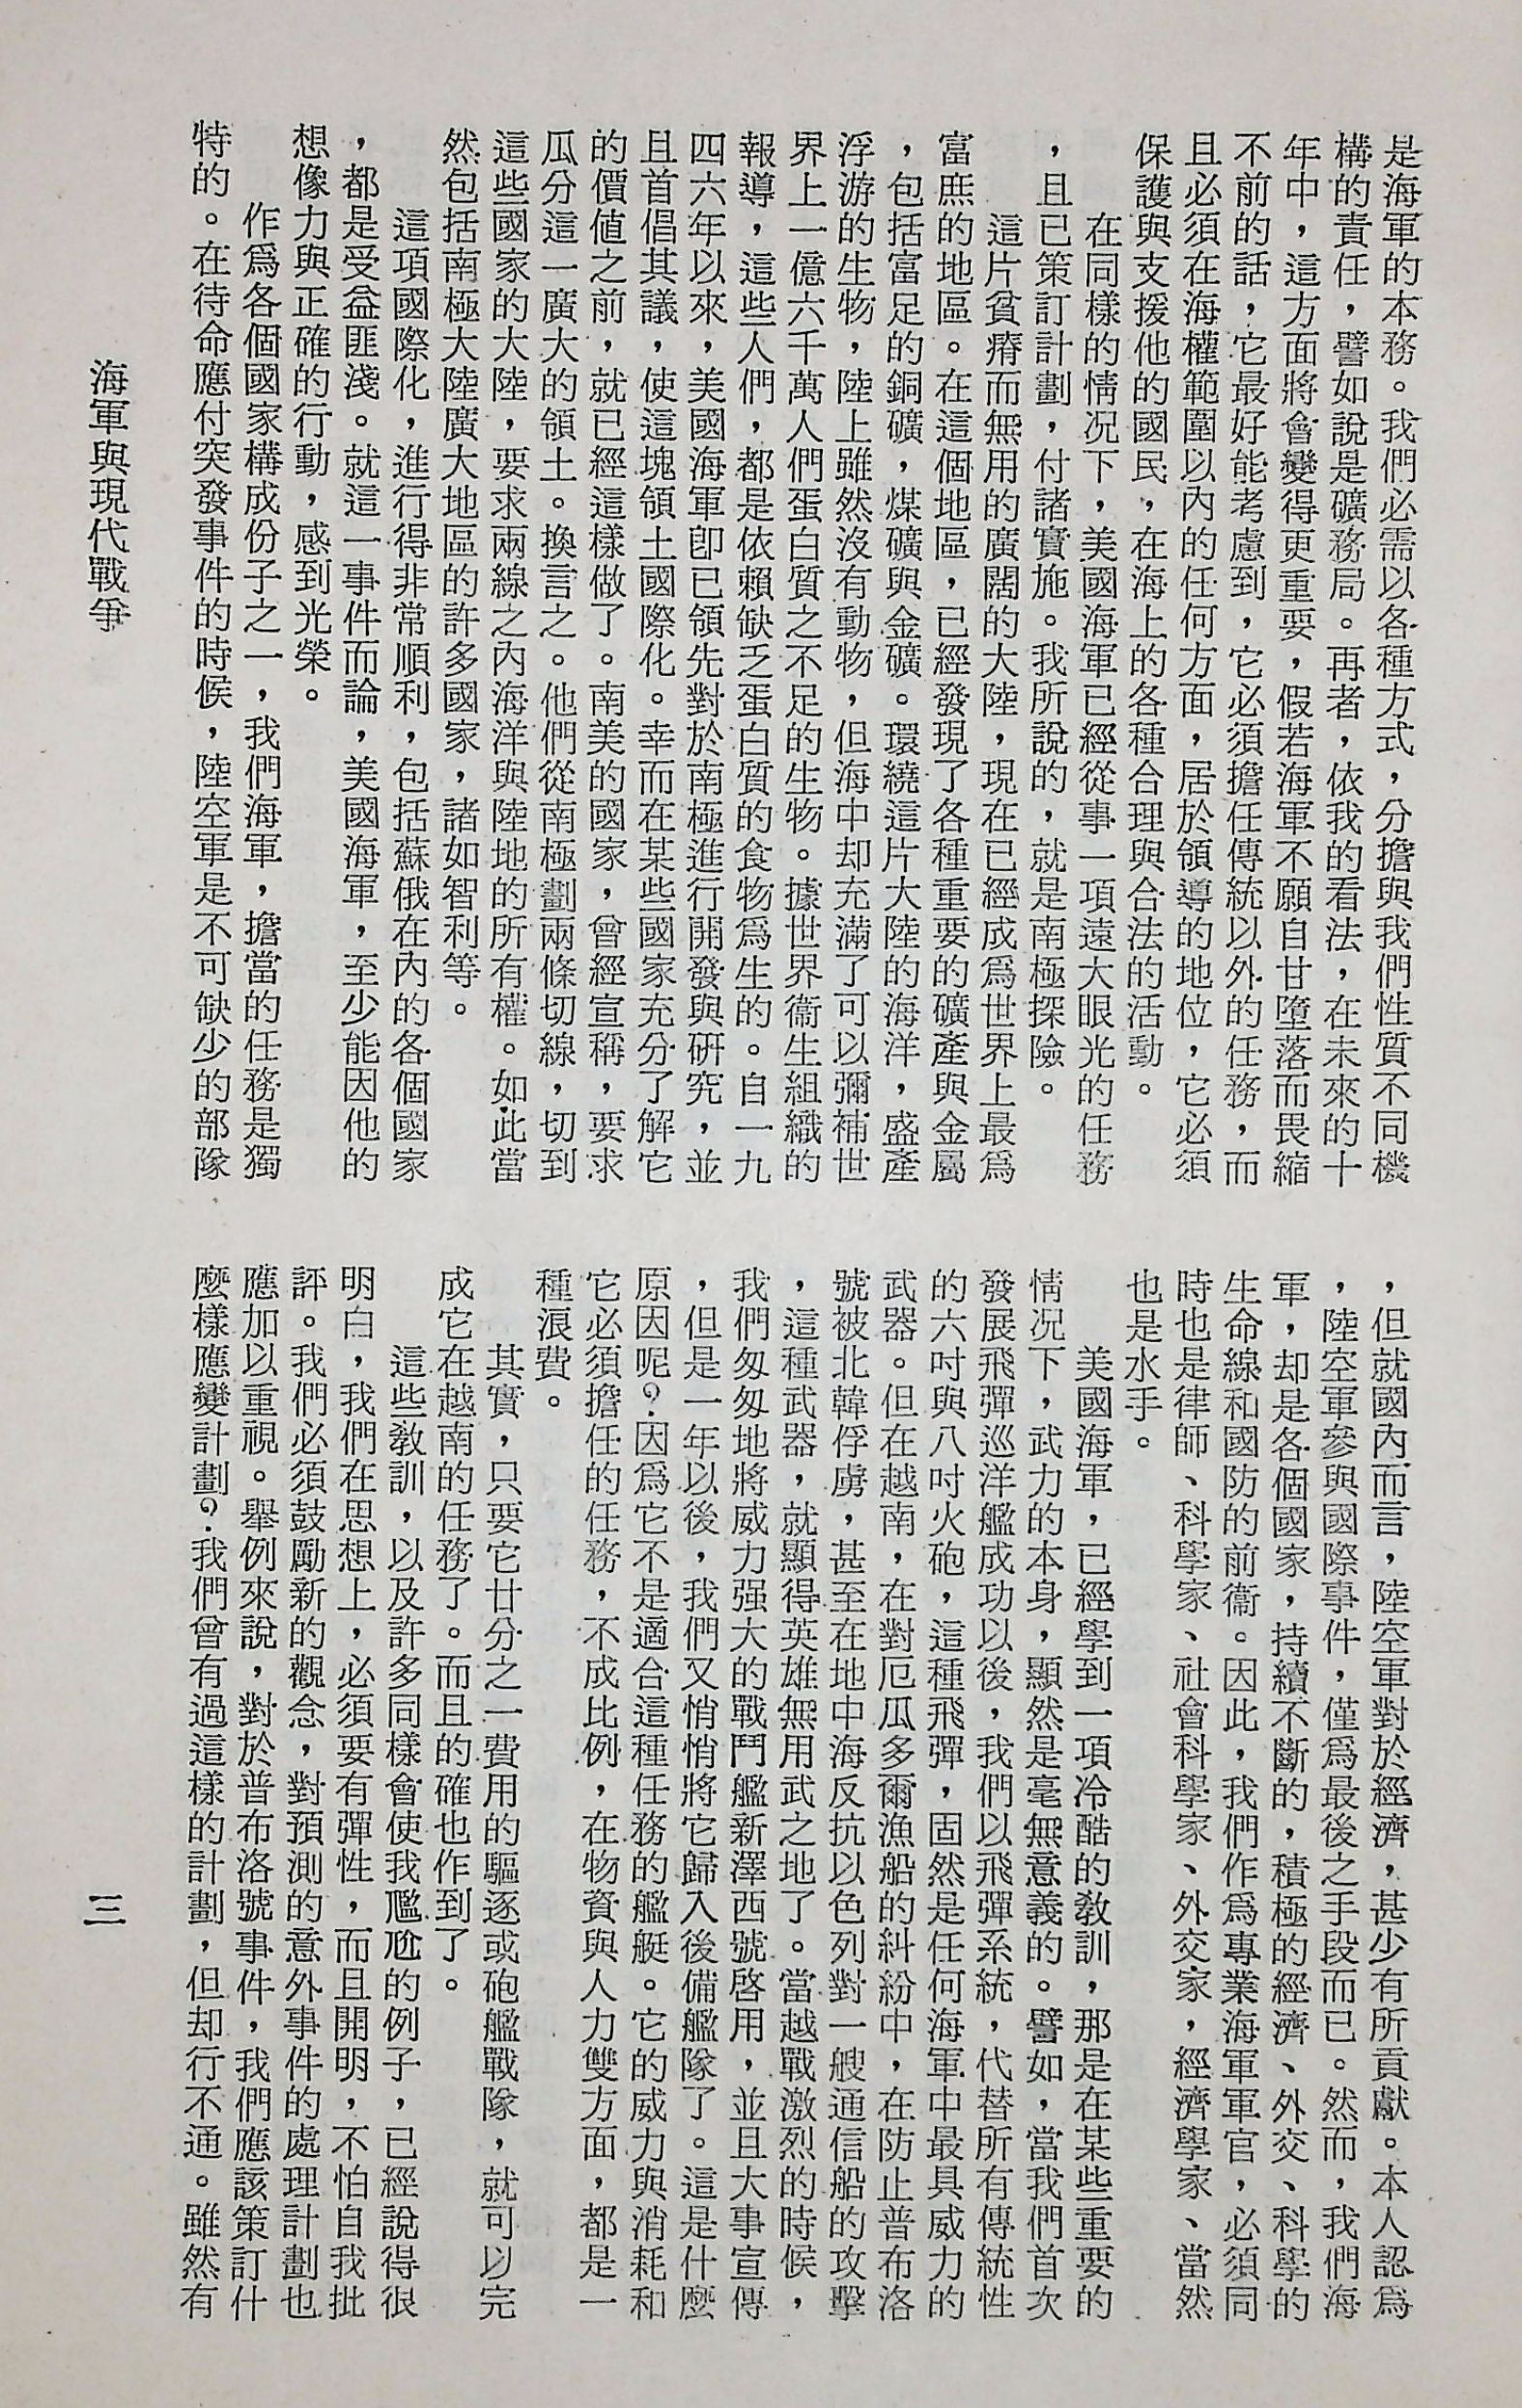 是海軍的本務。我們必需以各種方式，分擔與我們性質不同機
構的責任，譬如說是礦務局。再者，依我的看法，在未來的十
年中，這方面將會變得更重要，假若海軍不願自甘墮落而畏縮
不前的話，它最好能考慮到，它必須擔任傳統以外的任務，而
且必須在海權範圍以內的任何方面，居於領導的地位，它必須
保護與支援他的國民，在海上的各種合理與合法的活動。
在同樣的情況下，美國海軍已經從事一項遠大眼光的任務
，且已策訂計劃，付諸實施。我所說的，就是南極探險。
這片貧瘠而無用的廣闊的大陸，現在已經成爲世界上最爲
富庶的地區。在這個地區，已經發現了各種重要的礦產與金屬
，包括富足的銅礦，煤礦與金礦。環繞這片大陸的海洋，盛產
浮游的生物，陸上雖然沒有動物，但海中却充滿了可以彌補世
界上一億六千萬人們蛋白質之不足的生物。據世界衞生組織的
報導，這些人們，都是依賴缺乏蛋白質的食物爲生的。自一九
四六年以來，美國海軍卽已領先對於南極進行開發與硏究，並
且首倡其議，使這塊領土國際化。幸而在某些國家充分了解它
的價值之前，就已經這樣做了。南美的國家，曾經宣稱，要求
瓜分這一廣大的領土。換言之。他們從南極劃兩條切線，切到
這些國家的大陸，要求兩線之內海洋與陸地的所有權。如此當
然包括南極大陸廣大地區的許多國家，諸如智利等。
這項國際化，進行得非常順利，包括蘇俄在內的各個國家
，都是受益匪淺。就這一事件而論，美國海軍，至少能因他的
想像力與正確的行動，感到光榮。
作爲各個國家構成份子之一，我們海軍，擔當的任務是獨
特的。在待命應付突發事件的時候，陸空軍是不可缺少的部隊
，但就國內而言，陸空軍對於經濟，甚少有所貢獻。本人認爲
，陸空軍參與國際事件，僅爲最後之手段而已。然而，我們海
軍，却是各個國家，持續不斷的，積極的經濟、外交、科學的
生命線和國防的前衞。因此，我們作爲專業海軍軍官，必須同
時也是律師、科學家、社會科學家、外交家，經濟學家、當然
也是水手。
美國海軍，已經學到一項冷酷的敎訓，那是在某些重要的
情況下，武力的本身，顯然是毫無意義的。譬如，當我們首次
發展飛彈巡洋艦成功以後，我們以飛彈系統，代替所有傳統性
的六吋與八吋火砲，這種飛彈，固然是任何海軍中最具威力的
武器。但在越南，在對厄瓜多爾漁船的糾紛中，在防止普布洛
號被北韓俘虜，甚至在地中海反抗以色列對一艘通信船的攻擊
，這種武器，就顯得英雄無用武之地了。當越戰激烈的時候，
我們匆匆地將威力强大的戰鬥艦新澤西號啓用，並且大事宣傳
，但是一年以後，我們又悄悄將它歸入後備艦隊了。這是什麼
原因呢？因爲它不是適合這種任務的艦艇。它的威力與消耗和
它必須擔任的任務，不成比例，在物資與人力雙方面，都是一
種浪費。
其實，只要它廿分之一費用的驅逐或砲艦戰隊，就可以完
成它在越南的任務了。而且的確也作到了。
這些敎訓，以及許多同樣會使我尶尬的例子，已經說得很
明白，我們在思想上，必須要有彈性，而且開明，不怕自我批
評。我們必須鼓勵新的觀念，對預測的意外事件的處理計劃也
應加以重視。舉例來說，對於普布洛號事件，我們應該策訂什
麼樣應變計劃？我們曾有過這樣的計劃，但却行不通。雖然有
海軍與現代戰爭
三